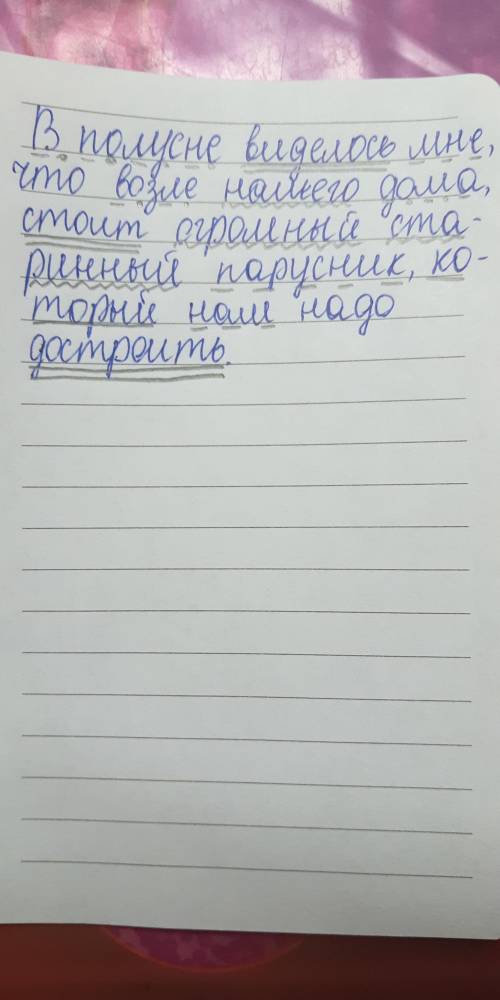 В полусне виделось мне,
что возле нашего дома,
стоит огромный ста-
ринный парусник, ко-
торый нам надо
достроить.